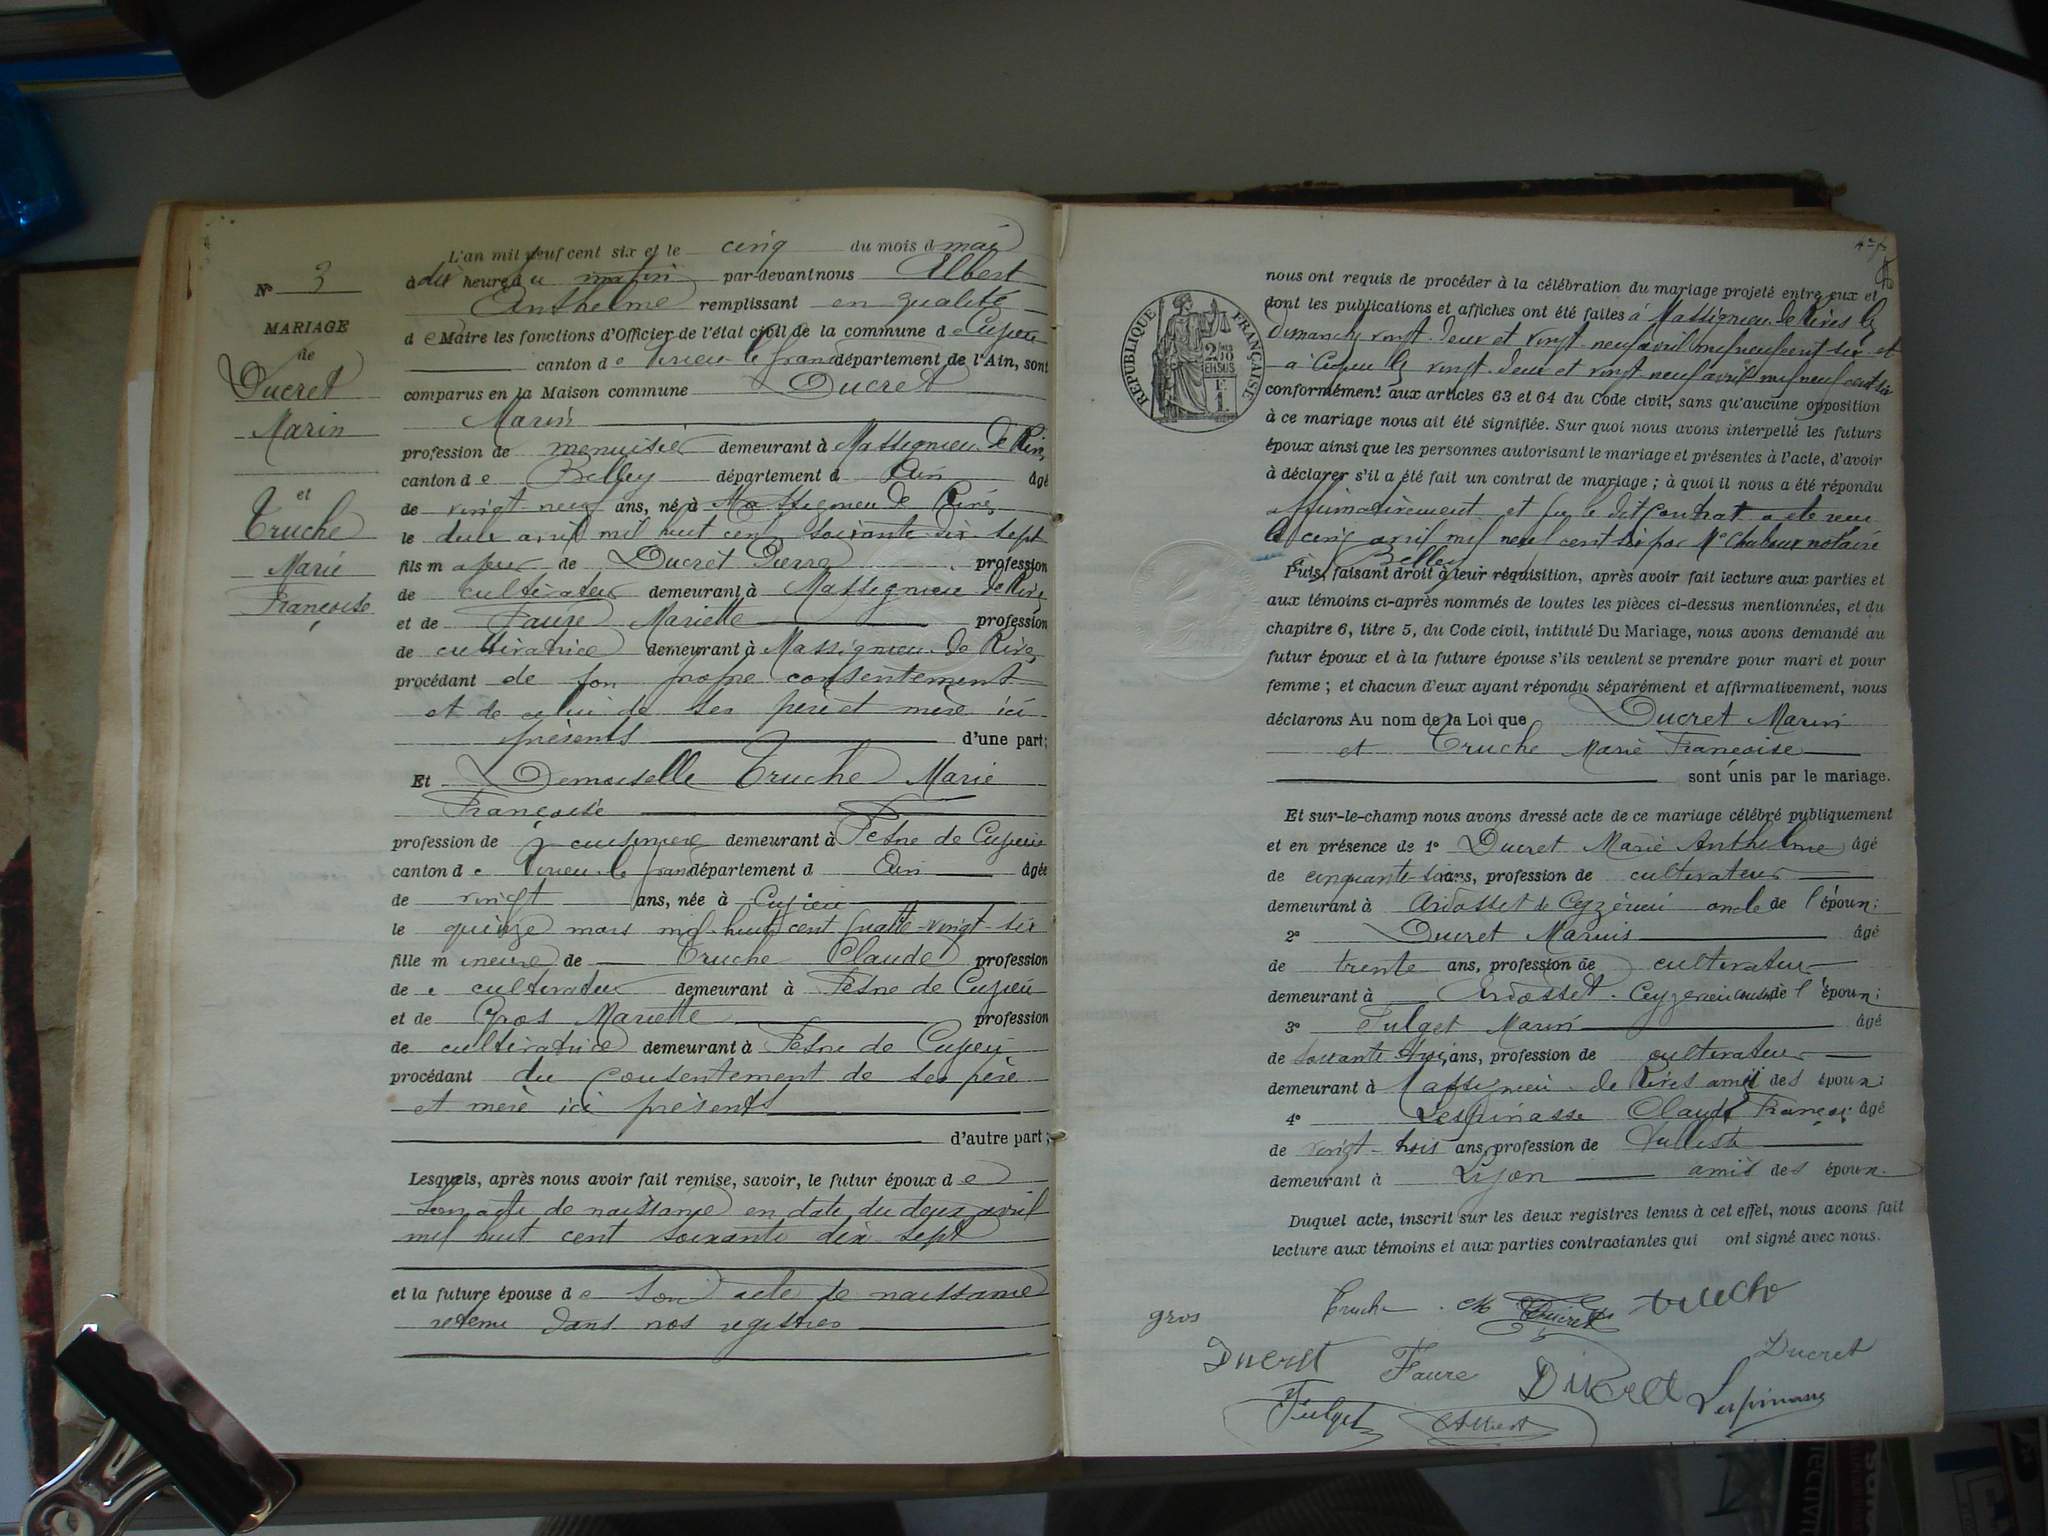 L'an mil neuf cent six et le cinq du mois d mai
à dix heures du matin par-devant nous Albert
Anthelme remplissant en qualité
d e Maire les fonctions d'Officier de l'état civil de la commune d e Cuzieu
canton d e Virieu-le-grand département de l'Ain, sont
comparus en la Maison commune Ducret
Marin
profession de menuisier demeurant à Massignieu de Rives
canton d e Belley département d Ain âgé
de vingt-neuf ans, né à Massignieu de Rives
le deux avril mil huit cent soixante dix-sept
fils majeur de Ducret Pierre profession
de cultivateur demeurant à Massignieu de Rives
et de Faure Mariette profession
de cultivatrice demeurant à Massignieu de Rives
procédant de son propre consentement
et de celui de ses père et mère ici
présents d'une part;
Et Demoiselle Truche Marie
Françoise
profession de cuisinière demeurant à de Cuzieu
canton d e Virieu-le-grand département d Ain âgée
de vingt ans, née à Cuzieu
le quinze mars mil-huit cent quatre-vingt-six
fille mineure de Truche Claude profession
de cultivateur demeurant à de Cuzieu
et de Gros Mariette profession
de cultivatrice demeurant à de Cuzieu
procédant du consentement de ses père
et mère ici présents
d'autre part;
Lesquels, après nous avoir fait remise, savoir, le futur époux d e
son acte de naissance en date du deux avril
mil huit cent soixante dix sept
et la future épouse d e son acte de naissance
retenu dans nos registres
N° 3
MARIAGE
de
Ducret
Marin
et
Truche
Marie
Françoise
nous ont requis de procéder à la célébration du mariage projeté entre eux et
dont les publications et affiches ont été faites à Massignieu de Rives les
dimanches vingt-deux et vingt-neuf avril mil neuf cent six et
à Cuzieu les vingt-deux et vingt-neuf avril mil neuf cent six
conformément aux articles 63 et 64 du Code civil, sans qu'aucune opposition
à ce mariage nous ait été signifiée. Sur quoi nous avons interpellé les futurs
époux ainsi que les personnes autorisant le mariage et présentes à l'acte, d'avoir
à déclarer s'il a été fait un contrat de mariage; à quoi il nous a été répondu
affirmativement et que le dit contrat a été reçu
le cinq avril mil neuf cent six par Me notaire
à Belley
Puis, faisant droit à leur réquisition, après avoir fait lecture aux parties et
aux témoins ci-après nommés de toutes les pièces ci-dessus mentionnées, et du
chapitre 6, titre 5, du Code civil, intitulé Du Mariage, nous avons demandé au
futur époux et à la future épouse s'ils veulent se prendre pour mari et pour
femme; et chacun d'eux ayant répondu séparément et affirmativement, nous
déclarons Au nom de la Loi que Ducret Marin
et Truche Marie Françoise
sont unis par le mariage.
Et sur-le-champ nous avons dressé acte de ce mariage célébré publiquement
et en présence de 1° Ducret Marie Anthelme âgé
de cinquante six ans, profession de cultivateur
demeurant à Ardosset de Ceyzérieu oncle de l'époux;
2° Ducret Marius âgé
de trente ans, profession de cultivateur
demeurant à Ardosset. Ceyzérieu cousin de l'époux;
3° Fulget Marin âgé
de soixante trois ans, profession de cultivateur
demeurant à Massignieu de Rives ami des époux;
4° Lespinasse Claude François âgé
de vingt-trois ans, profession de tulliste
demeurant à Lyon amis des époux.
Duquel acte, inscrit sur les deux registres tenus à cet effet, nous avons fait
lecture aux témoins et aux parties contractantes qui ont signé avec nous.
gros Truche M Ducret truche
Ducret Faure Ducret Ducret
Fulget Albert Lespinasse
RÉPUBLIQUE FRANÇAISE